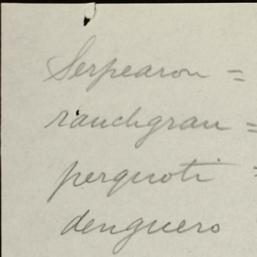 Serpearon =
rauchgrau =
perquoti =
denguero